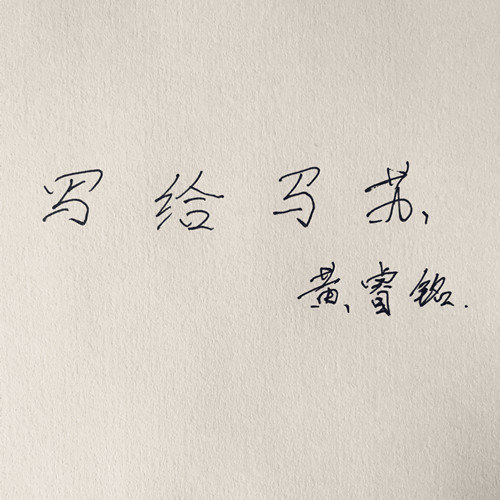 写给马苏
黄睿铭.